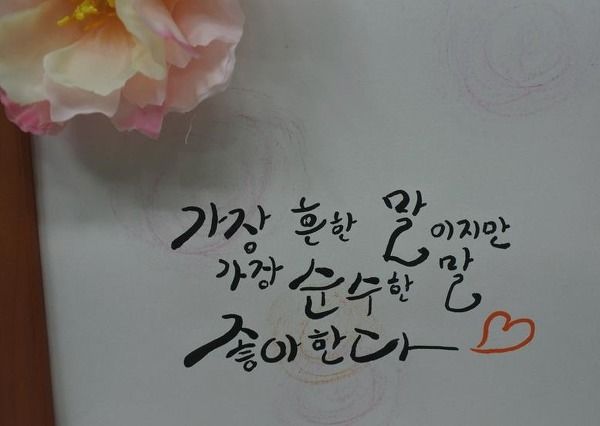 가장 흔한 말이지만
가장 순수한 말
좋아한다